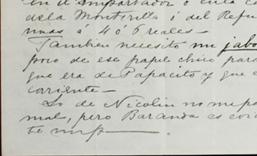 en el Importador o en la ca
de la Monterilla i del Refu
á 4 o 5 reales.
Tambien necesito un jabo
poco de ese papel chico para
que era de Papacito y que e
corriente.
Lo de Nicolin no me pa
mal, pero Baranda es co
te